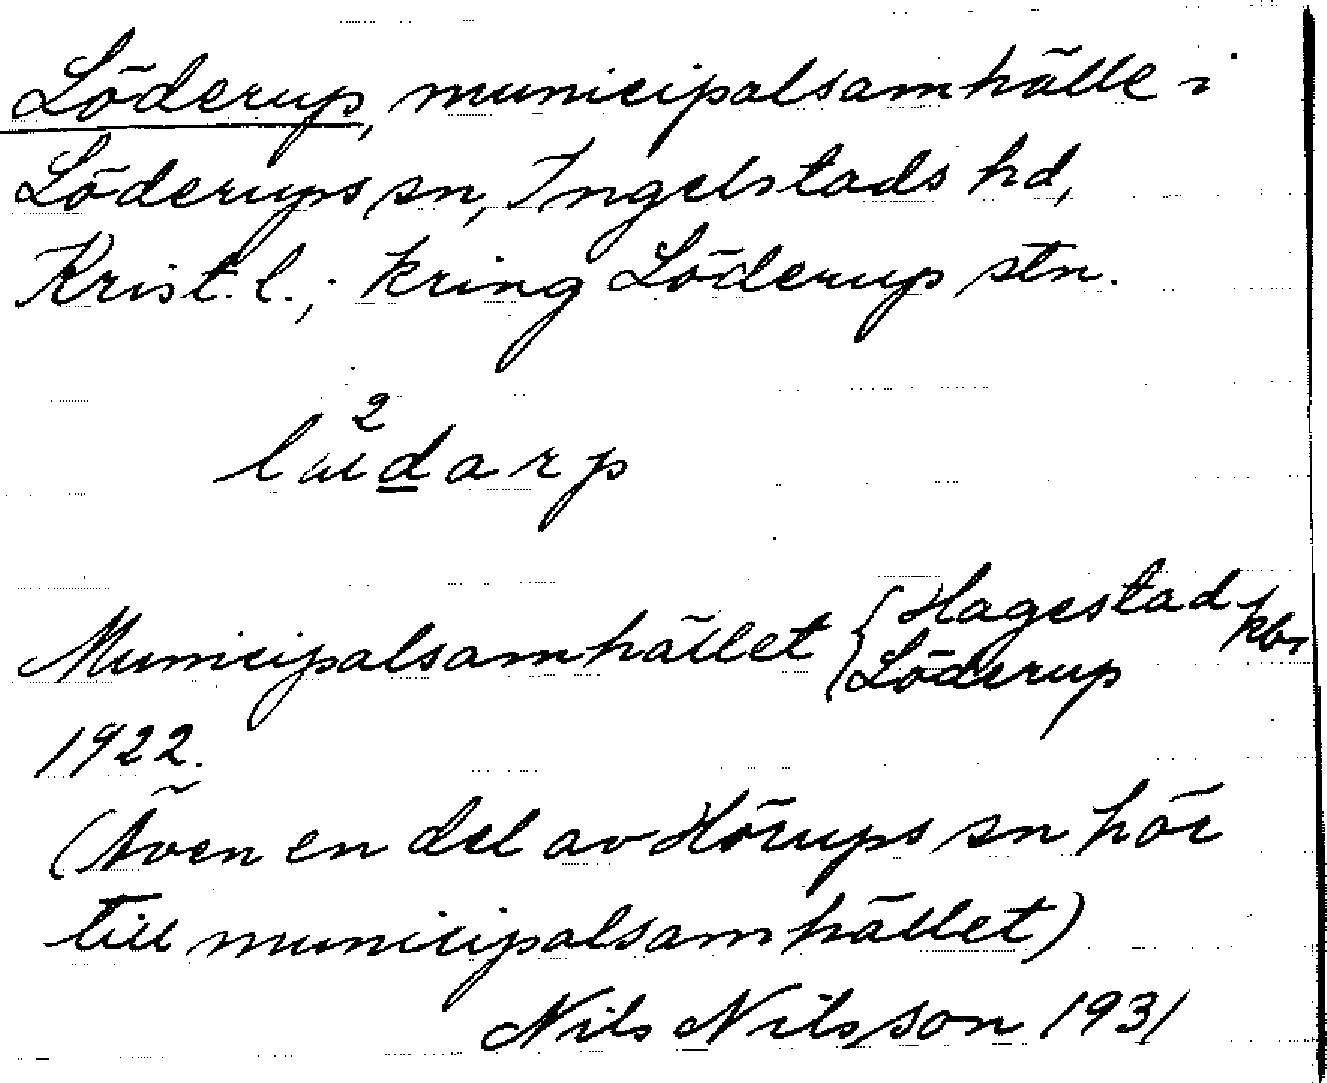 Löderup, municipalsamhälle i
Löderups sn, Ingelstads hd,
Krist. l.; kring Löderup stn.
2
Municipalsamhället { Hagestad kbr
Löderup
1922.
(Även en del av Hörups sn hör
till municipalsamhället)
Nils Nilsson 1931